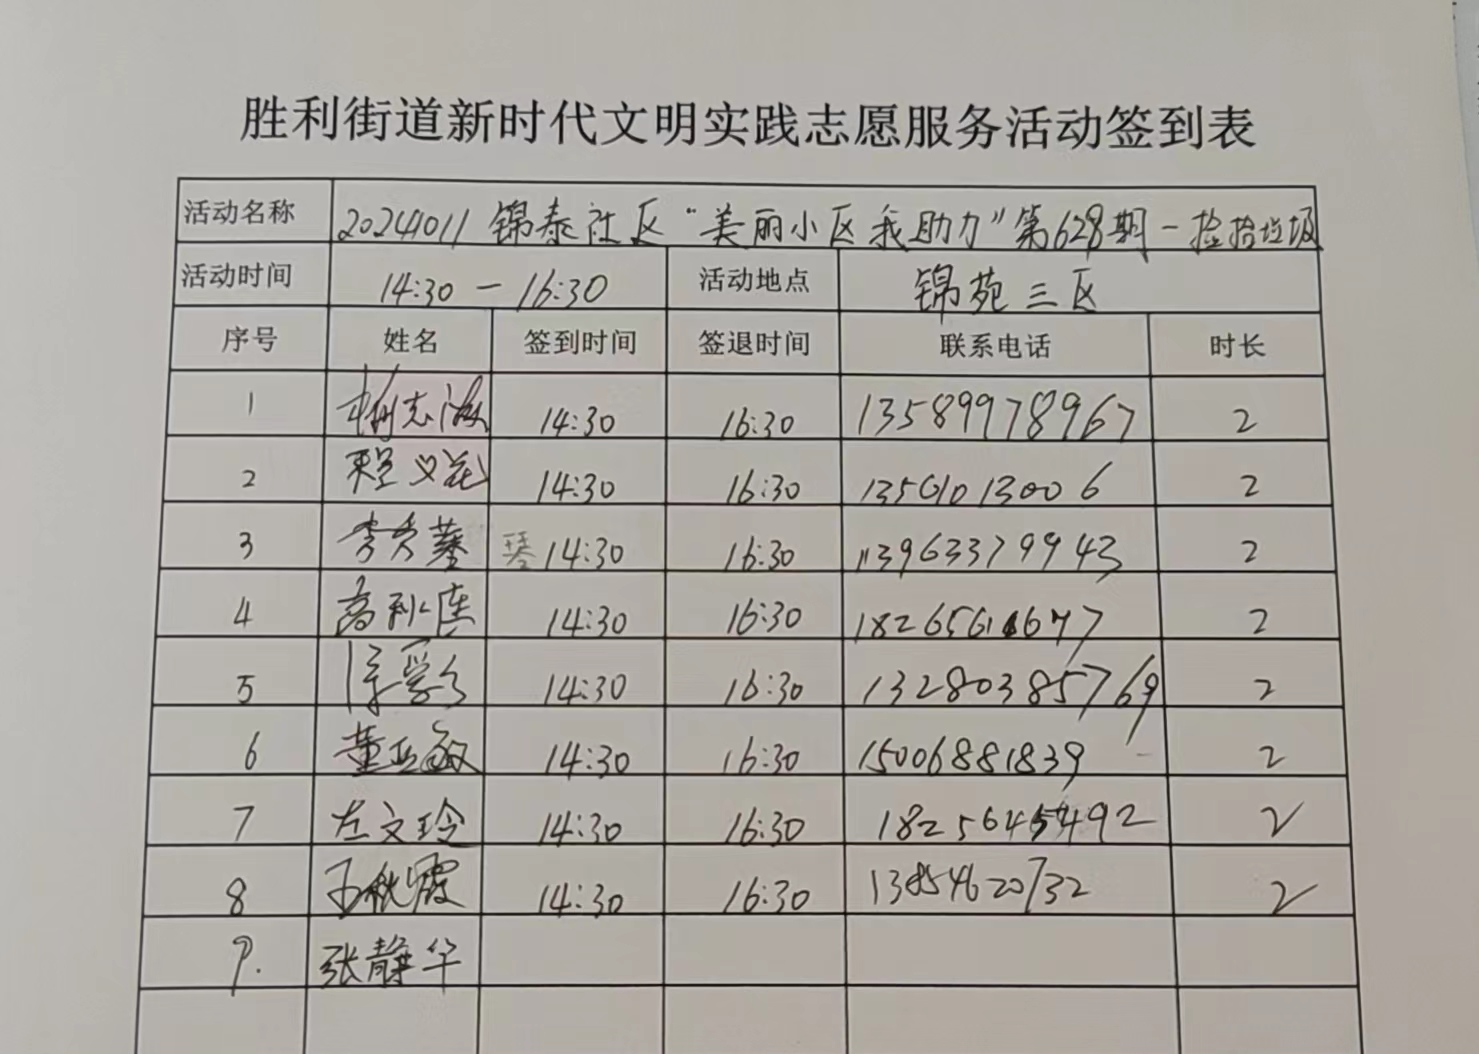 胜利街道新时代文明实践志愿服务活动签到表
活动名称 20241011 锦泰社区“美丽小区我助力”第628期-捡拾垃圾
活动时间 14:30 - 16:30 活动地点 锦苑三区
序号 姓名 签到时间 签退时间 联系电话 时长
1 14:30 16:30 13589978967 2
2 程义花 14:30 16:30 13561013006 2
3 李秀琴 琴 14:30 16:30 13963379943 2
4 14:30 16:30 2
5 14:30 16:30 13280385769 2
6 董亚敏 14:30 16:30 15006881839 2
7 左文玲 14:30 16:30 2
8 王秋霞 14:30 16:30 13854620732 2
9. 张静华